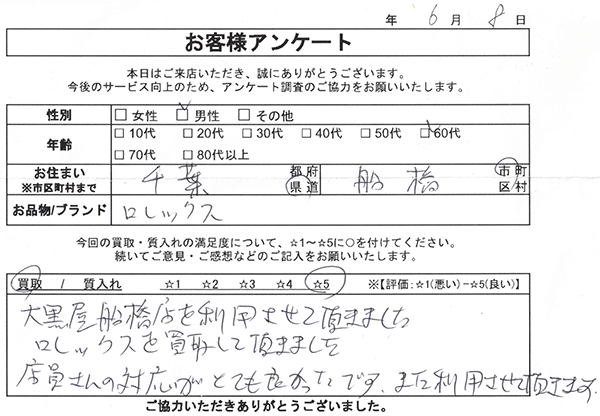 年 6 月 8 日
お客様アンケート
本日はご来店いただき、誠にありがとうございます。
今後のサービス向上のため、アンケート調査のご協力をお願いいたします。
性別 □ 女性 □ 男性 □ その他
年齢 □ 10代 □ 20代 □ 30代 □ 40代 □ 50代 □ 60代
□ 70代 □ 80代以上
お住まい ※市区町村まで 千葉 都 府 県 道 船橋 市 町 区 村
お品物/ブランド ロレックス
今回の買取・質入れの満足度について、☆1～☆5に○を付けてください。
続いてご意見・ご感想などのご記入をお願いいたします。
買取 / 質入れ ☆1 ☆2 ☆3 ☆4 ☆5 ※【評価：☆1(悪い)－☆5(良い)】
大黒屋船橋店を利用させて頂ましました
ロレックスを買取して頂ました
店員さんの対応がとても良かったです、また利用させて頂きます。
ご協力いただきありがとうございました。